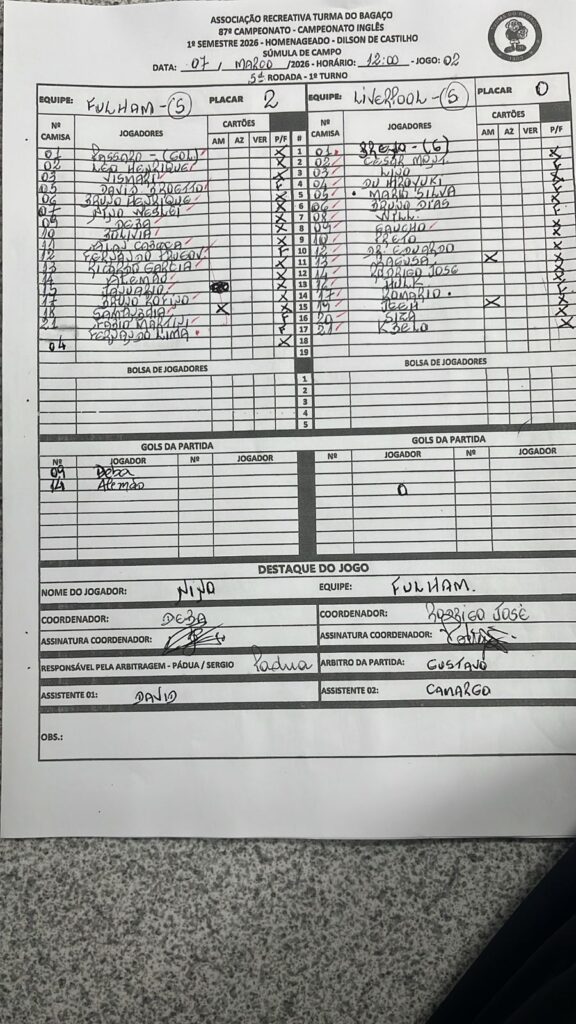 ASSOCIAÇÃO RECREATIVA TURMA DO BAGAÇO
87º CAMPEONATO - CAMPEONATO INGLÊS
1º SEMESTRE 2026 - HOMENAGEADO - DILSON DE CASTILHO
SÚMULA DE CAMPO
DATA: 07 / MARCO /2026 - HORÁRIO: 12:00 - JOGO: 02
5ª RODADA - 1º TURNO
EQUIPE: FULHAM - (5) PLACAR 2 EQUIPE: LIVERPOOL - (5) PLACAR 0
Nº CAMISA JOGADORES CARTÕES AM AZ VER P/F # Nº CAMISA JOGADORES CARTÕES AM AZ VER P/F
01 PASSARO - (GOL) X 1 01 BREJO - (G) X
02 LEO HENRIQUE X 2 02 CESAR MONT.
03 VISMARI X 3 03 LINO
05 DAVID BROETTO F 4 04 DU HIROYUKI
06 BRUNO HENRIQUE 5 05 MARIO SILVA
07 NINO WESLEI 6 06 BRUNO DIAS
09 DEBA 7 08 WILL
10 BOLIVIA 8 09 GAUCHO
11 ALAN CABEÇA 9 10 PRETO
12 FERNANDO 10 12 DR EDUARDO
13 RICARDO GARCIA 11 13 X
14 ALEMÃO 12 14 RODRIGO JOSÉ
15 13 16 HULK
17 BRUNO 14 17 ROMARIO
18 X 15 19 X
21 FABIO MARTINI F 16 20
04 FERNANDO LIMA X 17 21 X
18
19
BOLSA DE JOGADORES BOLSA DE JOGADORES
1
2
3
4
5
GOLS DA PARTIDA GOLS DA PARTIDA
Nº JOGADOR Nº JOGADOR Nº JOGADOR Nº JOGADOR
09 Deba
14 Alemão 0
DESTAQUE DO JOGO
NOME DO JOGADOR: NINO EQUIPE: FULHAM.
COORDENADOR: DEBA COORDENADOR: RODRIGO JOSÉ
ASSINATURA COORDENADOR: ASSINATURA COORDENADOR:
RESPONSÁVEL PELA ARBITRAGEM - PÁDUA / SERGIO Padua ARBITRO DA PARTIDA: GUSTAVO
ASSISTENTE 01: DAVID ASSISTENTE 02: CAMARGO
OBS.: